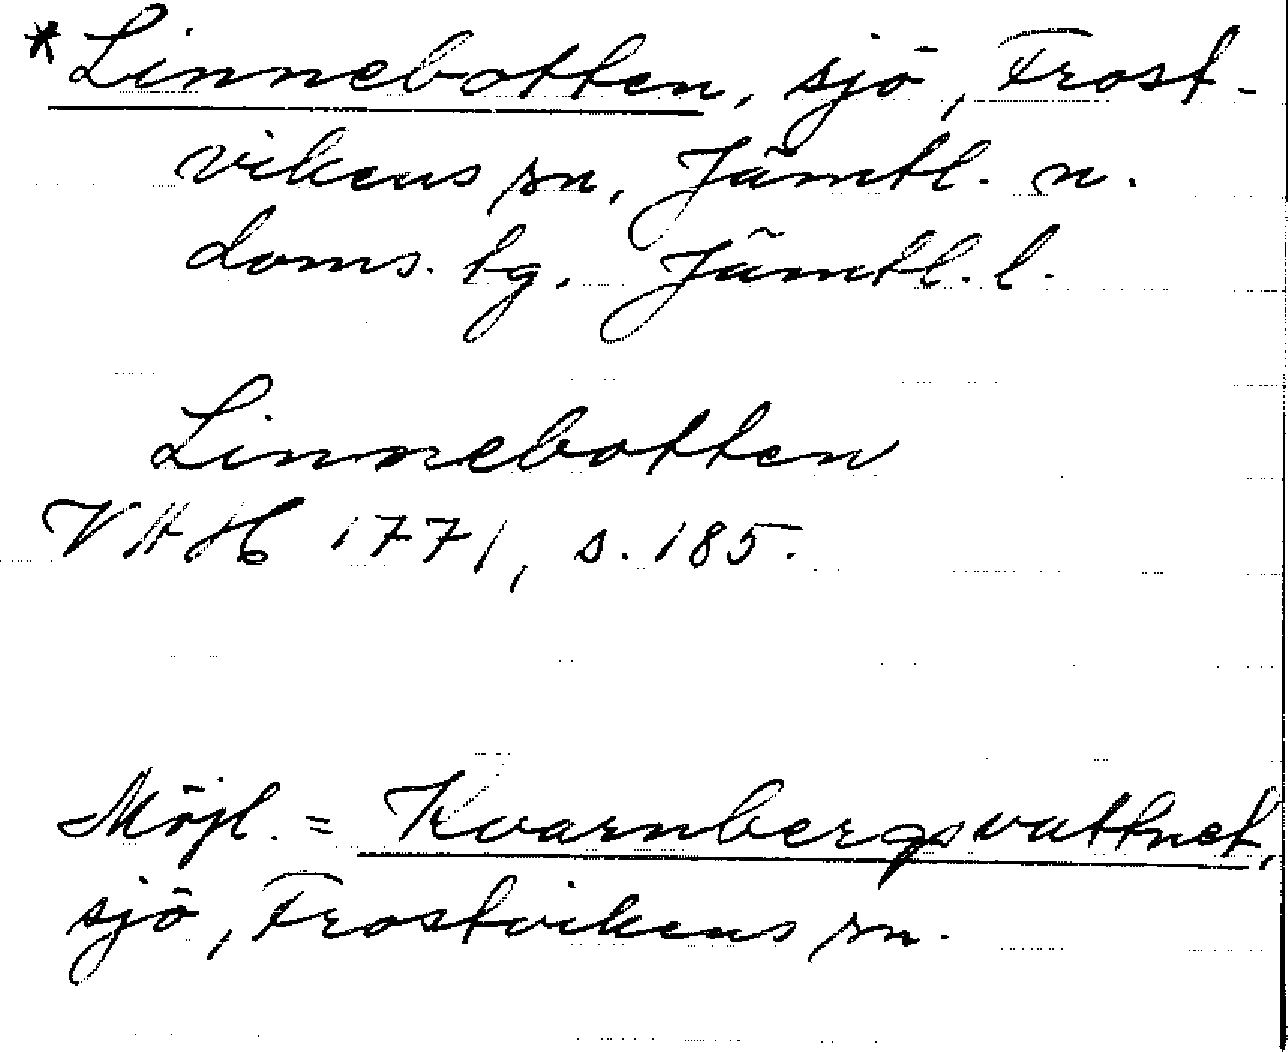 *Linnebotten, sjö, Frost-
vikens sn, Jämtl. n.
doms. tg. Jämtl. l.
Linnebotten
VAH 1771, s. 185.
Möjl. = Kvarnbergsvattnet,
sjö, Frostvikens sn.